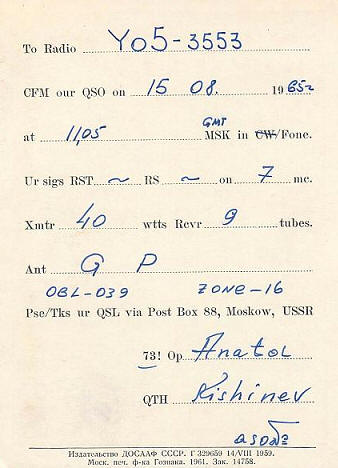 To Radio YO5-3553
CFM our QSO on 15 08. 1965
GMT
at 11,05 MSK in CW/Fone.
Ur sigs RST ~ RS ~ on 7 mc.
Xmtr 40 wtts Rcvr 9 tubes.
Ant G P
OBL-039 ZONE-16
Pse/Tks ur QSL via Post Box 88, Moskow, USSR
73! Op Anatol
QTH Kishinev
Издательство ДОСААФ СССР. Г 329659 14/VIII 1959.
Моск. печ. ф-ка Гознака. 1961. Зак. 14758.